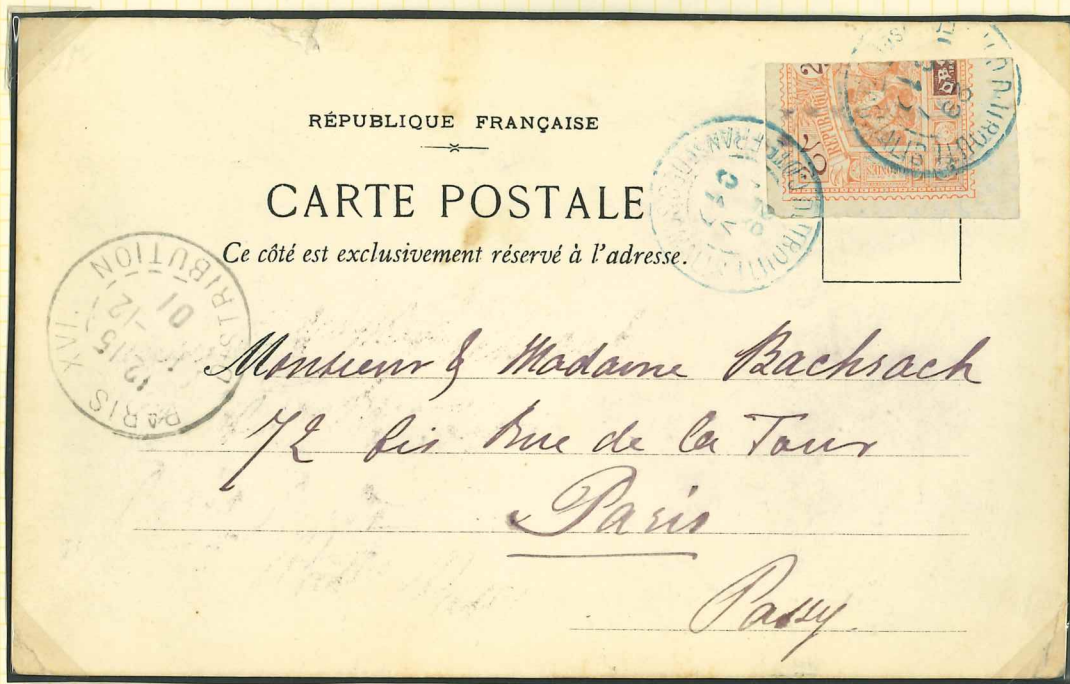 RÉPUBLIQUE FRANÇAISE
CARTE POSTALE
Ce côté est exclusivement réservé à l'adresse.
PARIS XVI. DISTRIBUTION
12 15
-12
01
Monsieur & Madame Bachrach
72 bis Rue de la Tour
Paris
Passy